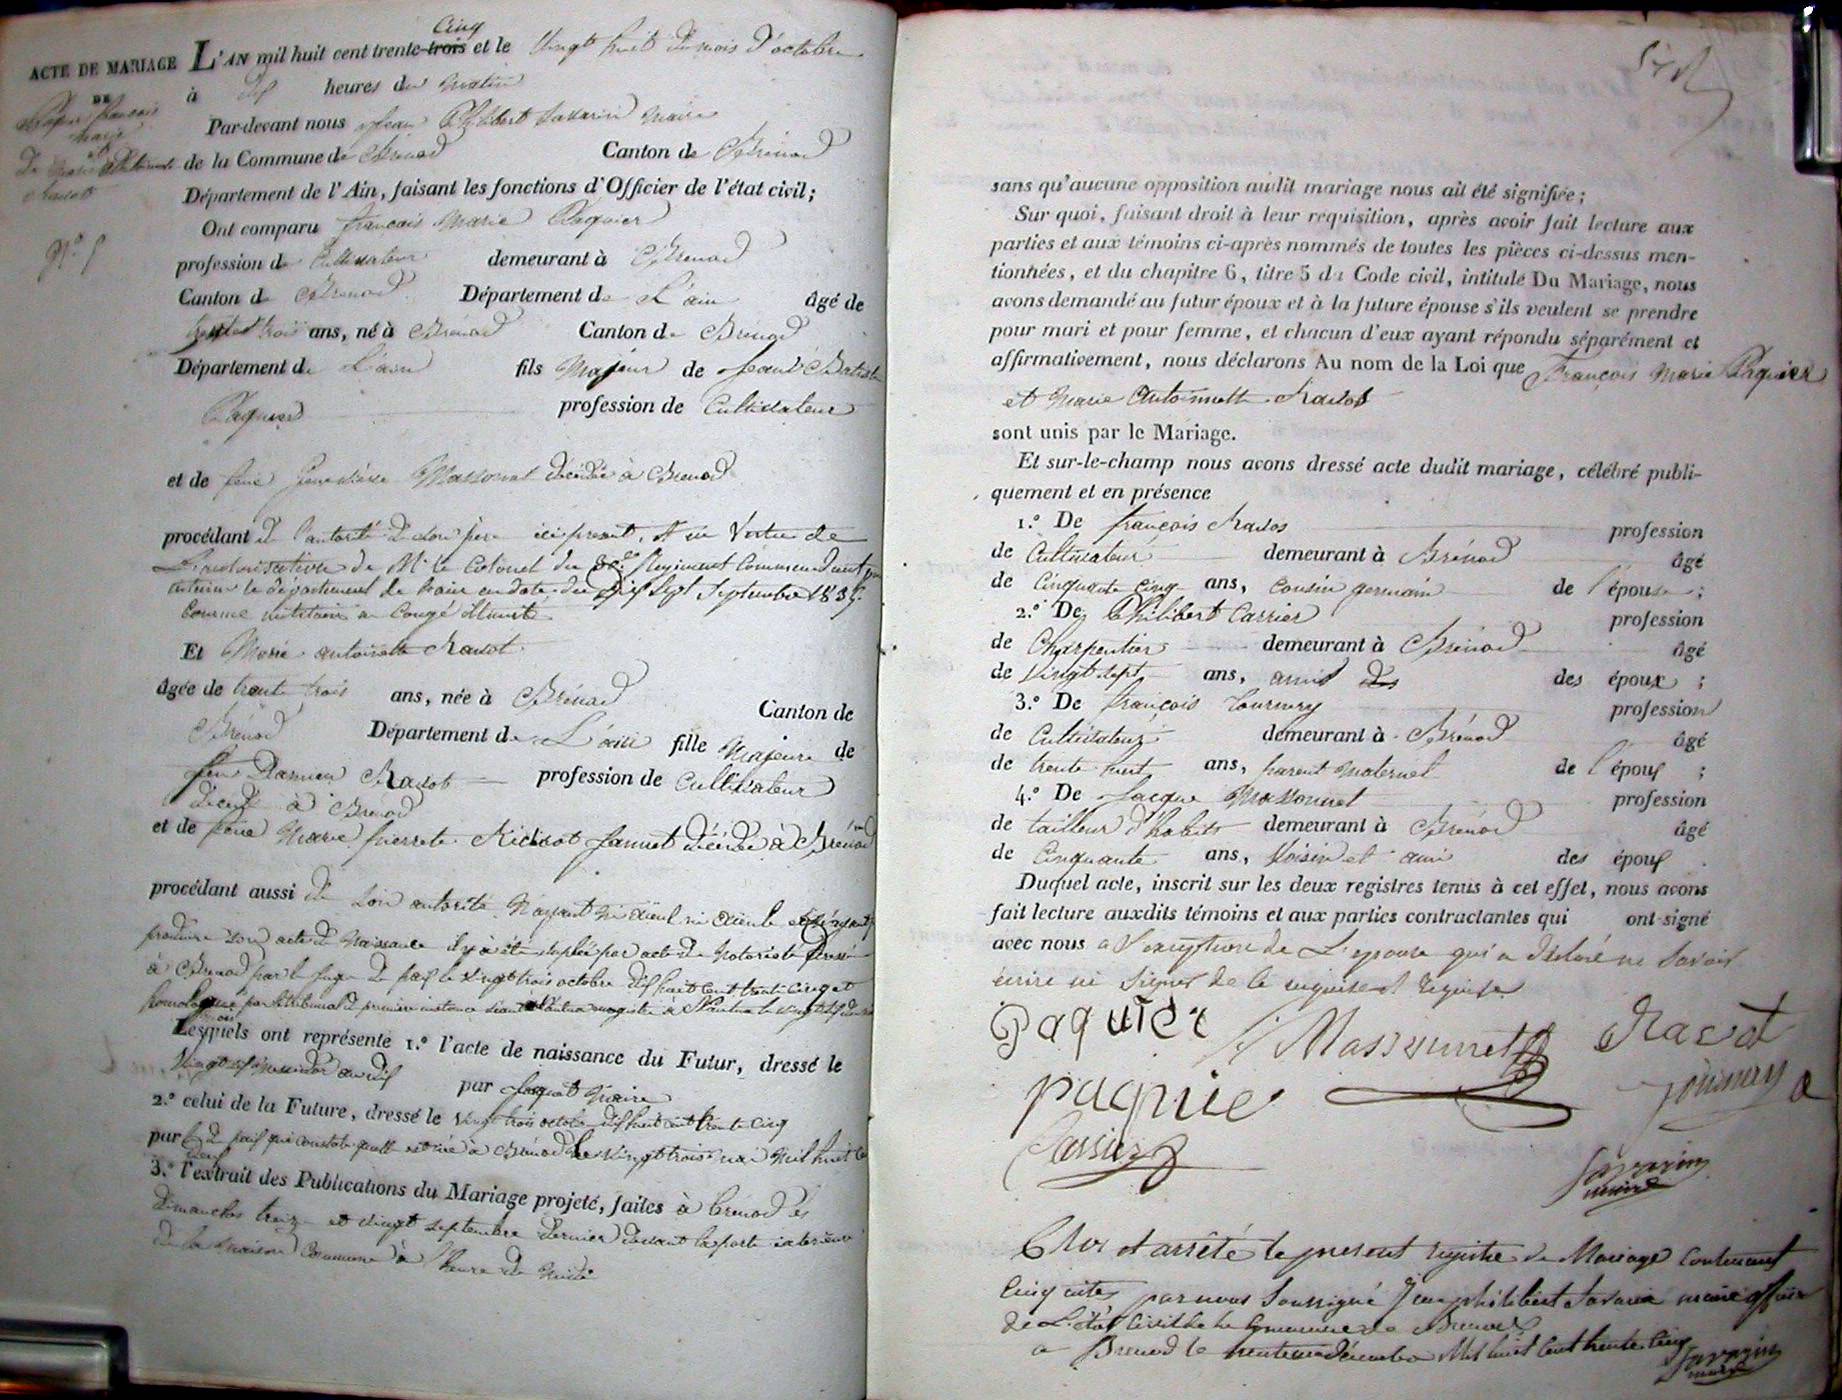 ACTE DE MARIAGE
DE
Paquier françois
marie
et
de marie Antoinette
Ravot
N.º 5
cinq
L'AN mil huit cent trente-trois et le Vingt huit du mois d'octobre
à dix heures du matin
Par-devant nous Jean Philibert Savarin Maire
de la Commune de Brénod Canton de Brénod
Département de l'Ain, faisant les fonctions d'Officier de l'état civil;
Ont comparu françois Marie Paquier
profession de Cultivateur demeurant à Brénod
Canton de Brénod Département de L'ain âgé de
trente trois ans, né à Brénod Canton de Brénod
Département de L'ain fils Majeur de Jean Baptiste
Paquier profession de Cultivateur
et de feue Genevieve Massonnet décédée à Brenod
procédant de l'autorité de son père ici présent, et en Vertu de
L'autorisation de Mr le Colonel du Regiment Commandant par
le département de l'ain en date du dix sept Septembre 1835
comme militaire en Congé illimité
Et Marie antoinette Ravot
âgée de trente trois ans, née à Brénod Canton de
Brénod Département de L'ain fille Majeure de
feu Damien Ravot profession de Cultivateur
décédé à Brénod
et de feue Marie pierrete Jannet décédée à Brénod
procédant aussi de son autorité N'ayant ni aïeul ni aïeule
produire son acte de Naissance il y a été suplée par acte de Notoriété dressé
à Brenod par le juge de paix le vingt trois octobre dix huit cent trente cinq et
homologué par le tribunal de première instance séant à Nantua
Lesquels ont représenté 1.º l'acte de naissance du Futur, dressé le
Vingt Messidor an dix par Maire
2.º celui de la Future, dressé le vingt trois octobre dix huit cent trente cinq
par le de paix qui constate quelle est née à Brénod le vingt trois mai Mil huit cent
deux
3.º l'extrait des Publications du Mariage projeté, faites à Brénod les
dimanches treize et vingt septembre dernier devant la porte exterieure
de la maison Commune à l'heure de midi
sans qu'aucune opposition audit mariage nous ait été signifiée;
Sur quoi, faisant droit à leur requisition, après avoir fait lecture aux
parties et aux témoins ci-après nommés de toutes les pièces ci-dessus men-
tionnées, et du chapitre 6, titre 5 du Code civil, intitulé Du Mariage, nous
avons demandé au futur époux et à la future épouse s'ils veulent se prendre
pour mari et pour femme, et chacun d'eux ayant répondu séparément et
affirmativement, nous déclarons Au nom de la Loi que François Marie Paquier
et Marie Antoinette Ravot
sont unis par le Mariage.
Et sur-le-champ nous avons dressé acte dudit mariage, célébré publi-
quement et en présence
1.º De françois Ravot profession
de Cultivateur demeurant à Brénod âgé
de Cinquante cinq ans, cousin germain de l'épouse;
2.º De Philibert Carrier profession
de Charpentier demeurant à Brénod âgé
de Vingt sept ans, ami des des époux;
3.º De françois Tournery profession
de Cultivateur demeurant à Brénod âgé
de trente huit ans, parent maternel de l'époux;
4.º De Jacque Massonnet profession
de tailleur d'habits demeurant à Brénod âgé
de Cinquante ans, Voisin et ami des époux.
Duquel acte, inscrit sur les deux registres tenus à cet effet, nous avons
fait lecture auxdits témoins et aux parties contractantes qui ont signé
avec nous a l'exception de L'epouse qui a déclaré ne savoir
écrire ni signer de ce enquise et requise
Paquier Massonnet Ravot
paquie
Carrier
Savarin
maire
Clos et arrêté le present registre de Mariage Contenant
Cinq actes par nous Soussigné Jean philibert Savarin maire officier
de L'état Civil de la Commune de Brenod
a Brenod le décembre Mil huit Cent trente Cinq
Savarin
maire